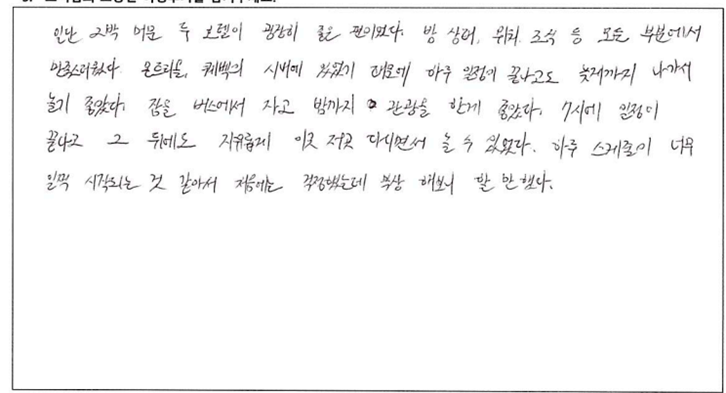 일단 2박 머문 두 호텔이 굉장히 좋은 편이었다. 방 상태, 위치, 조식 등 모든 부분에서
만족스러웠다. 몬트리올, 퀘벡의 시내에 있었기 때문에 하루 일정이 끝나고도 늦게까지 나가서
놀기 좋았다. 잠을 버스에서 자고 밤까지 관광을 한게 좋았다. 7시에 일정이
끝나고 그 뒤에도 자유롭게 이곳 저곳 다니면서 놀 수 있었다. 하루 스케줄이 너무
일찍 시작되는 것 같아서 처음에는 걱정했는데 막상 해보니 할 만 했다.